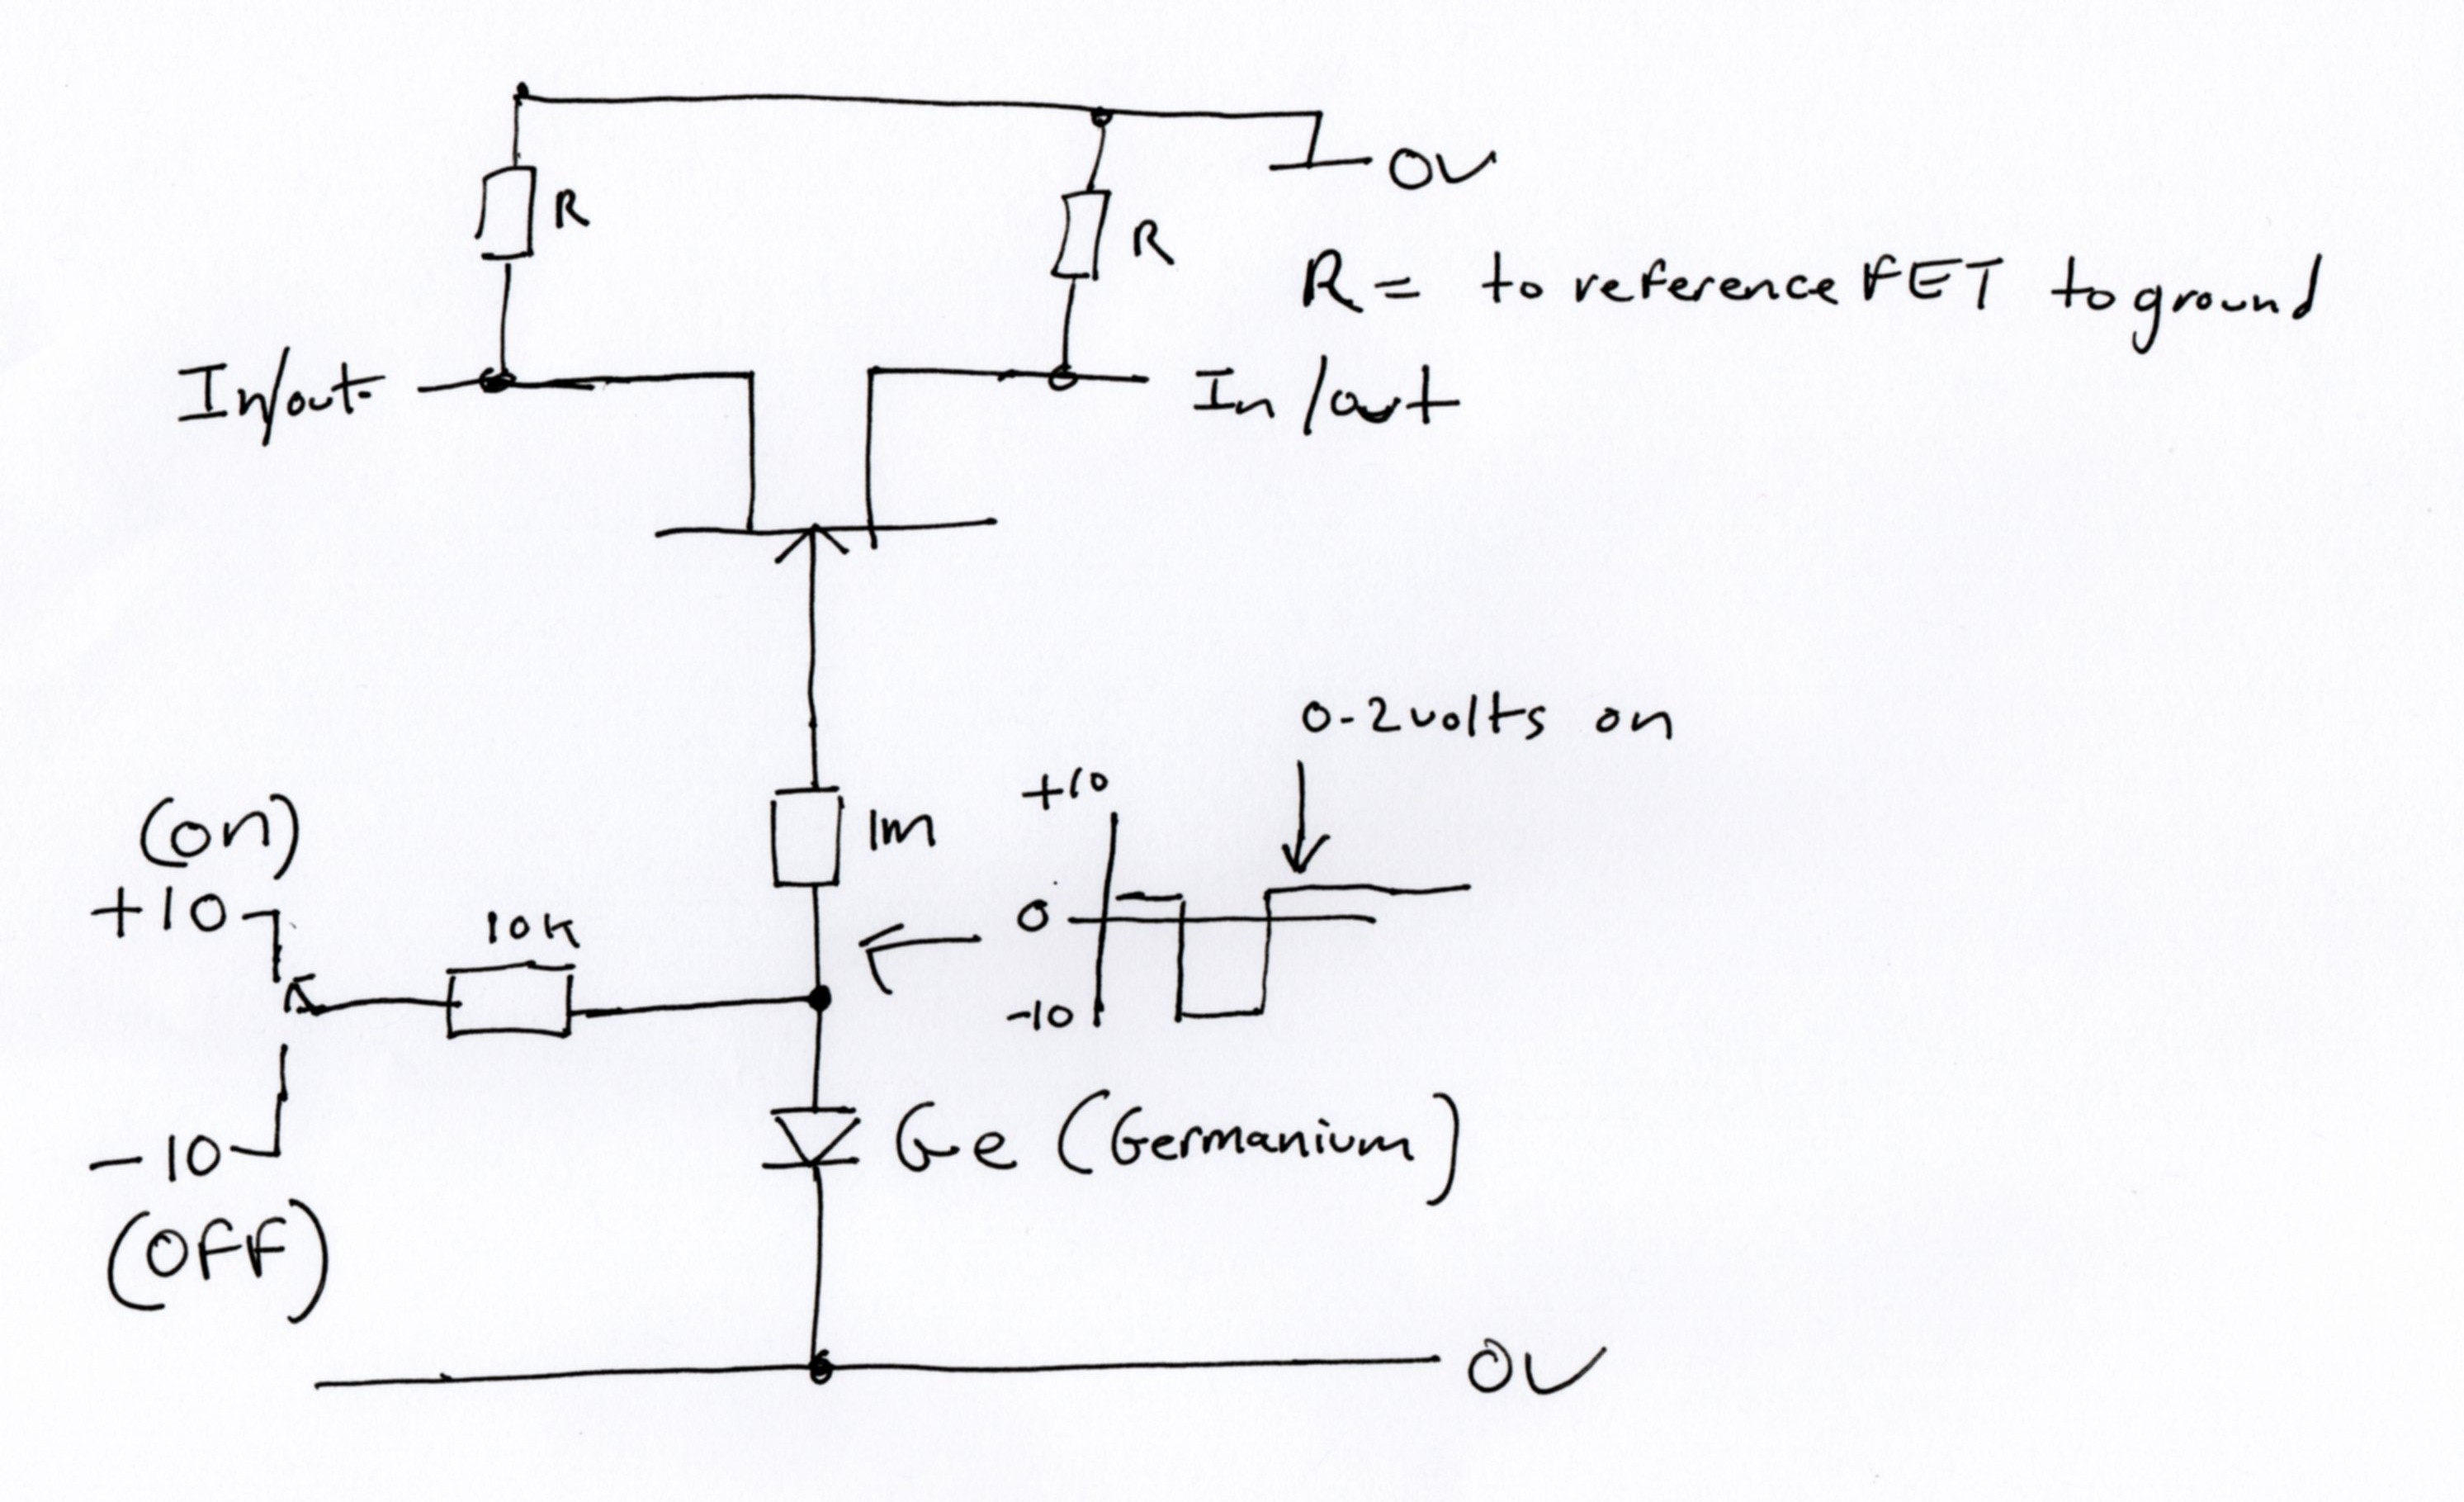 0V
R
R
R = to reference FET to ground
In/out
In/out
0.2volts on
+10
(on)
1m
+10
0
10K
-10
-10
Ge (Germanium)
(OFF)
0V